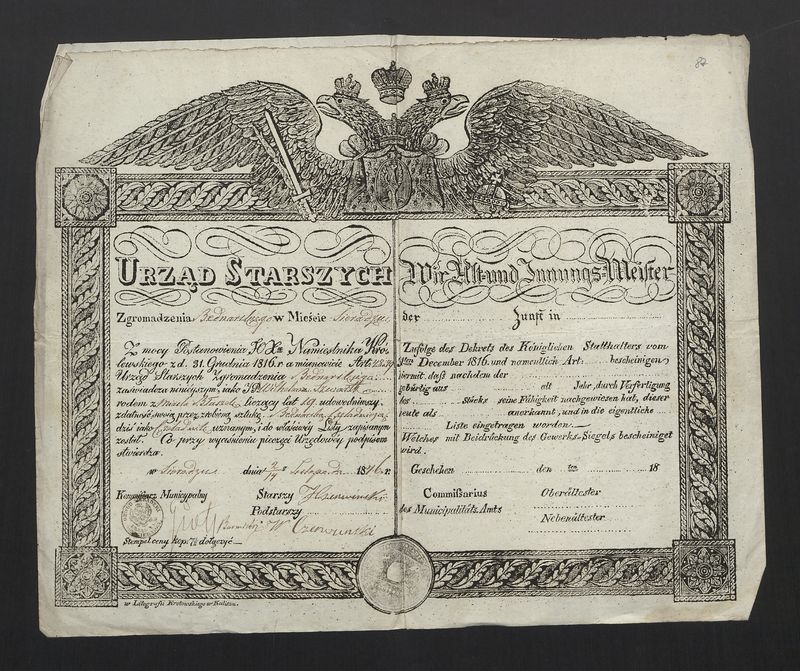 82
URZĄD STARSZYCH
Zgromadzenia Bednarskiego w Mieście Sieradzu
Z mocy Postanowienia JO. Xcia Namiestnika Kró-
lewskiego z d. 31. Grudnia 1816. r. a mianowicie Art.
Urząd Starszych Zgromadzenia
zaświadcza niniejszym, jako JP. Wilhelm
rodem z miasta liczący lat 19. udowodniwszy
zdatność swoją przez zrobioną sztukę
dziś jako Czeladnik uznanym, i do właściwéy Listy zapisanym
został. Co przy wyciśnieniu pieczęci Urzędowéy podpisem
stwierdza.
w Sieradzu dnia Listopada 1846 r.
Kommissarz Municypalny Starszy
Podstarszy
W. Czerwiński
Stempel ceny kop. 7½ dołączyć
w Litografii Krotowskiego w Kaliszu.
Wir Alt-und Innungs-Meister
der Zunft in
Zufolge des Dekrets des Königlichen Statthalters vom
31sten December 1816. und namentlich Art: bescheinigen
hermit, daß nachdem der
gebürtig aus alt Jahr, durch Verfertigung
des Stücks seine Fähigkeit nachgewiesen hat, dieser
heute als anerkannt, und in die eigentliche
Liste eingetragen worden.
Welches mit Beidrückung des Gewerks-Siegels bescheiniget
wird.
Geschehen den ten 18
Commißarius Oberältester
des Municipalitäts Amts
Nebenältester